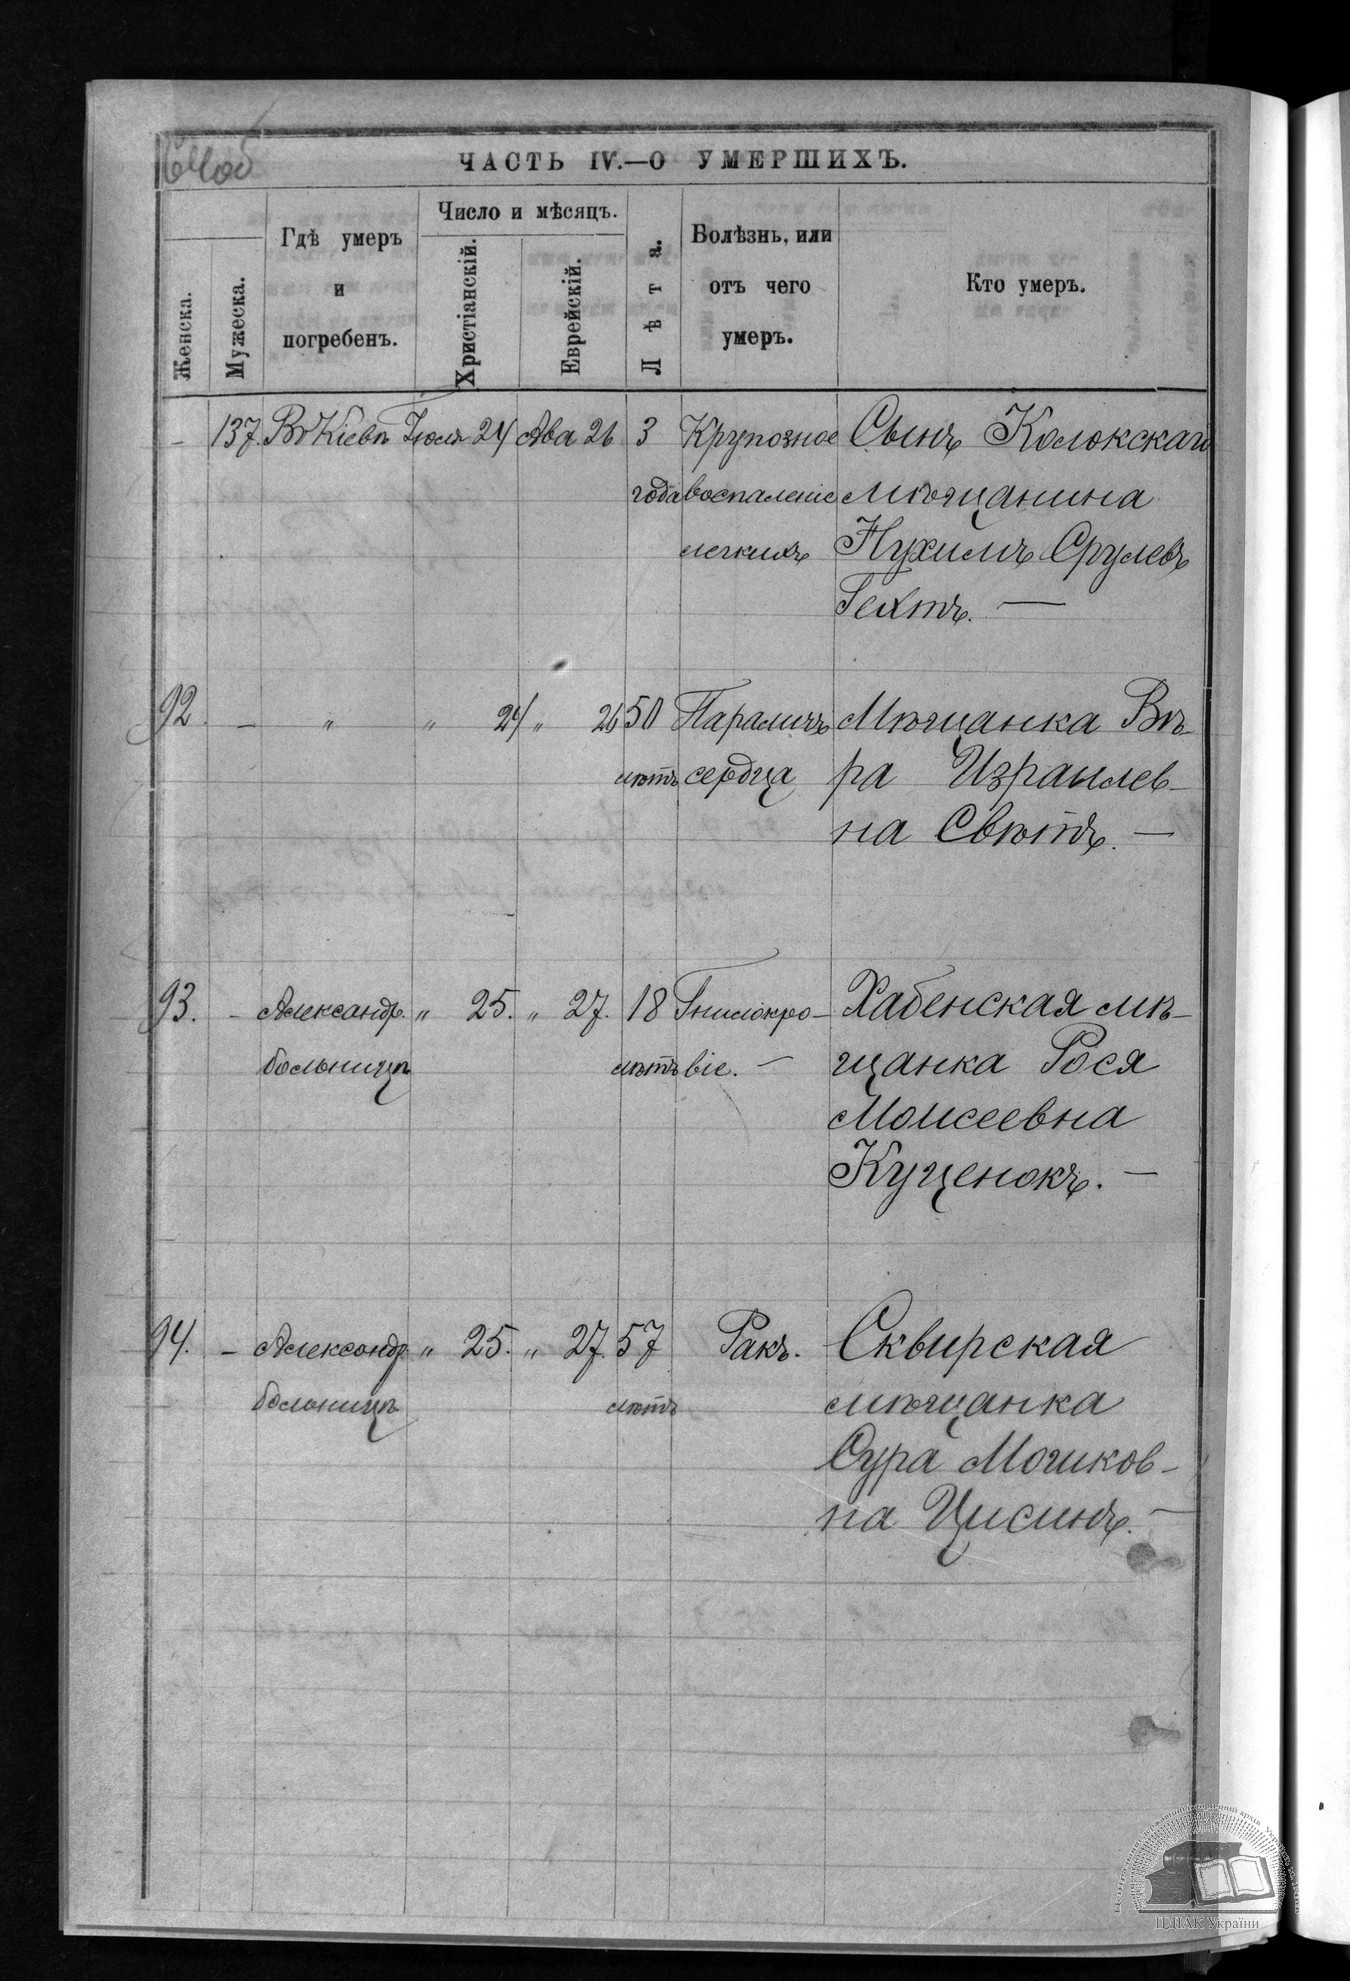 ЧАСТЬ IV.—О УМЕРШИХЪ.
Женска.
Мужеска.
Гдѣ умеръ
и
погребенъ.
Число и мѣсяцъ.
Христіанскій.
Еврейскій.
Лѣта.
Болѣзнь, или
отъ чего
умеръ.
Кто умеръ.
– 137. Въ Кіевѣ Іюля 24 Ава 26 3 Крупозное Сынъ Колокскаго
года воспаленіе мѣщанина
легкихъ Нухимъ Срулевъ
Гехтъ. —
92. – " " 24 " 26 50 Параличъ Мѣщанка Вѣ-
лѣтъ сердца ра Израилев-
на Свѣтъ. —
93. – Александр. " 25. " 27. 18 Гнилокро- Хабенская мѣ-
больницѣ лѣтъ віе. — щанка Рося
Моисеевна
Куценокъ. —
94. – Александр. " 25. " 27. 57 Ракъ. Сквирская
больницѣ лѣтъ мѣщанка
Сура Мошков-
на Цисинъ. —
ЦДІАК України